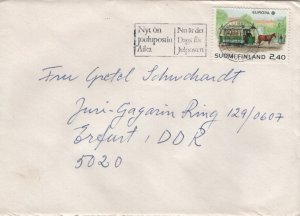 Nyt on
joulupostin
Aika
Nu är det
Dags för
Julposten
EUROPA
SUOMI FINLAND 2,40
Frau Gretel Schuchardt
Juri-Gagarin Ring 129/0607
Erfurt, DDR
5020